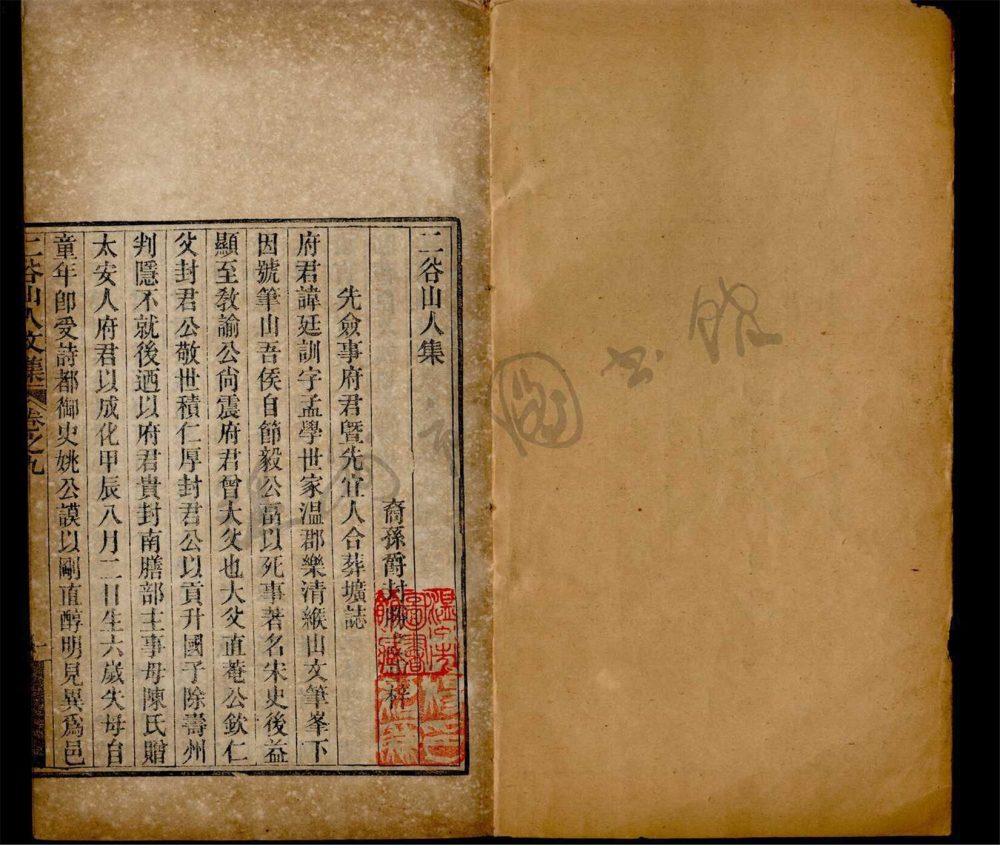 二谷山人集
裔孫爵封
梓
先僉事府君曁先宜人合葬壙誌
府君諱廷訓字孟學世家温郡樂清緱山文筆峯下
因號筆山吾侯自節毅公畐以死事著名宋史後益
顯至教諭公尚震府君曾大父也大父直菴公欽仁
父封君公敬世積仁厚封君公以貢升國子除壽州
判隱不就後迺以府君貴封南膳部主事母陳氏贈
太安人府君以成化甲辰八月二日生六歲失母自
童年卽受詩都御史姚公謨以剛直醇明見異爲邑
二谷山人文集 卷之九 一
圖書館